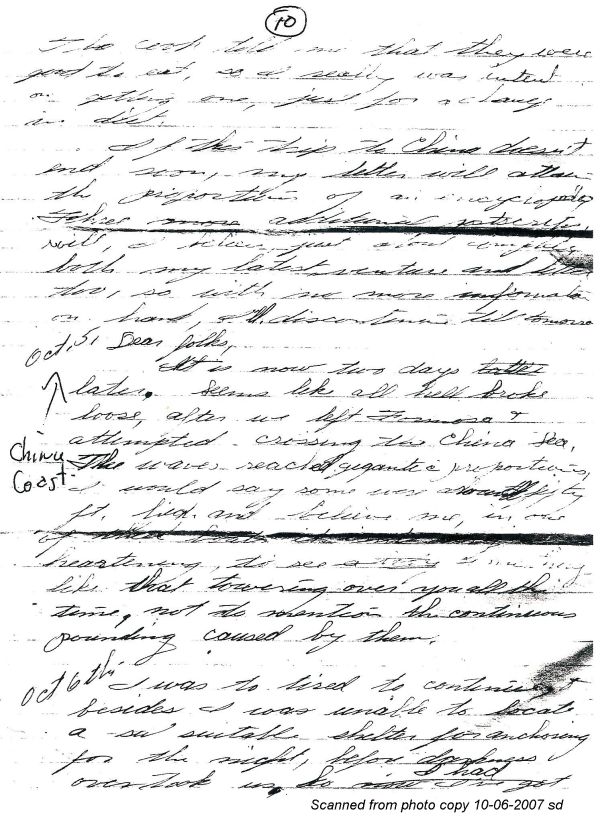 10
The cook tell me that they were
good to eat, so I really was intent
on getting one, just for a change
in diet.
If this trip to China doesn't
end soon, my letter will attain
the proportions of an encyclopedia
additional
well, I believe, just about
both my latest venture and letter
too, so with no more information
on hand, I'll discontinue till tomorrow
Oct. 5, Dear folks,
It is now two days latter
later. Seems like all hell broke
loose, after we left Formosa &
attempted crossing the China Sea.
China Coast
The waves reached gigantic proportions,
I would say some were around fifty
ft. high and believe me, in one
of
heartening, to see
like that towering over you all the
time, not to mention the continuous
pounding caused by them.
Oct 6th
I was to tired to continue &
besides I was unable to locate
a su suitable shelter for anchoring
for the night, before darkness
overtook us. So I had I've got
Scanned from photo copy 10-06-2007 sd